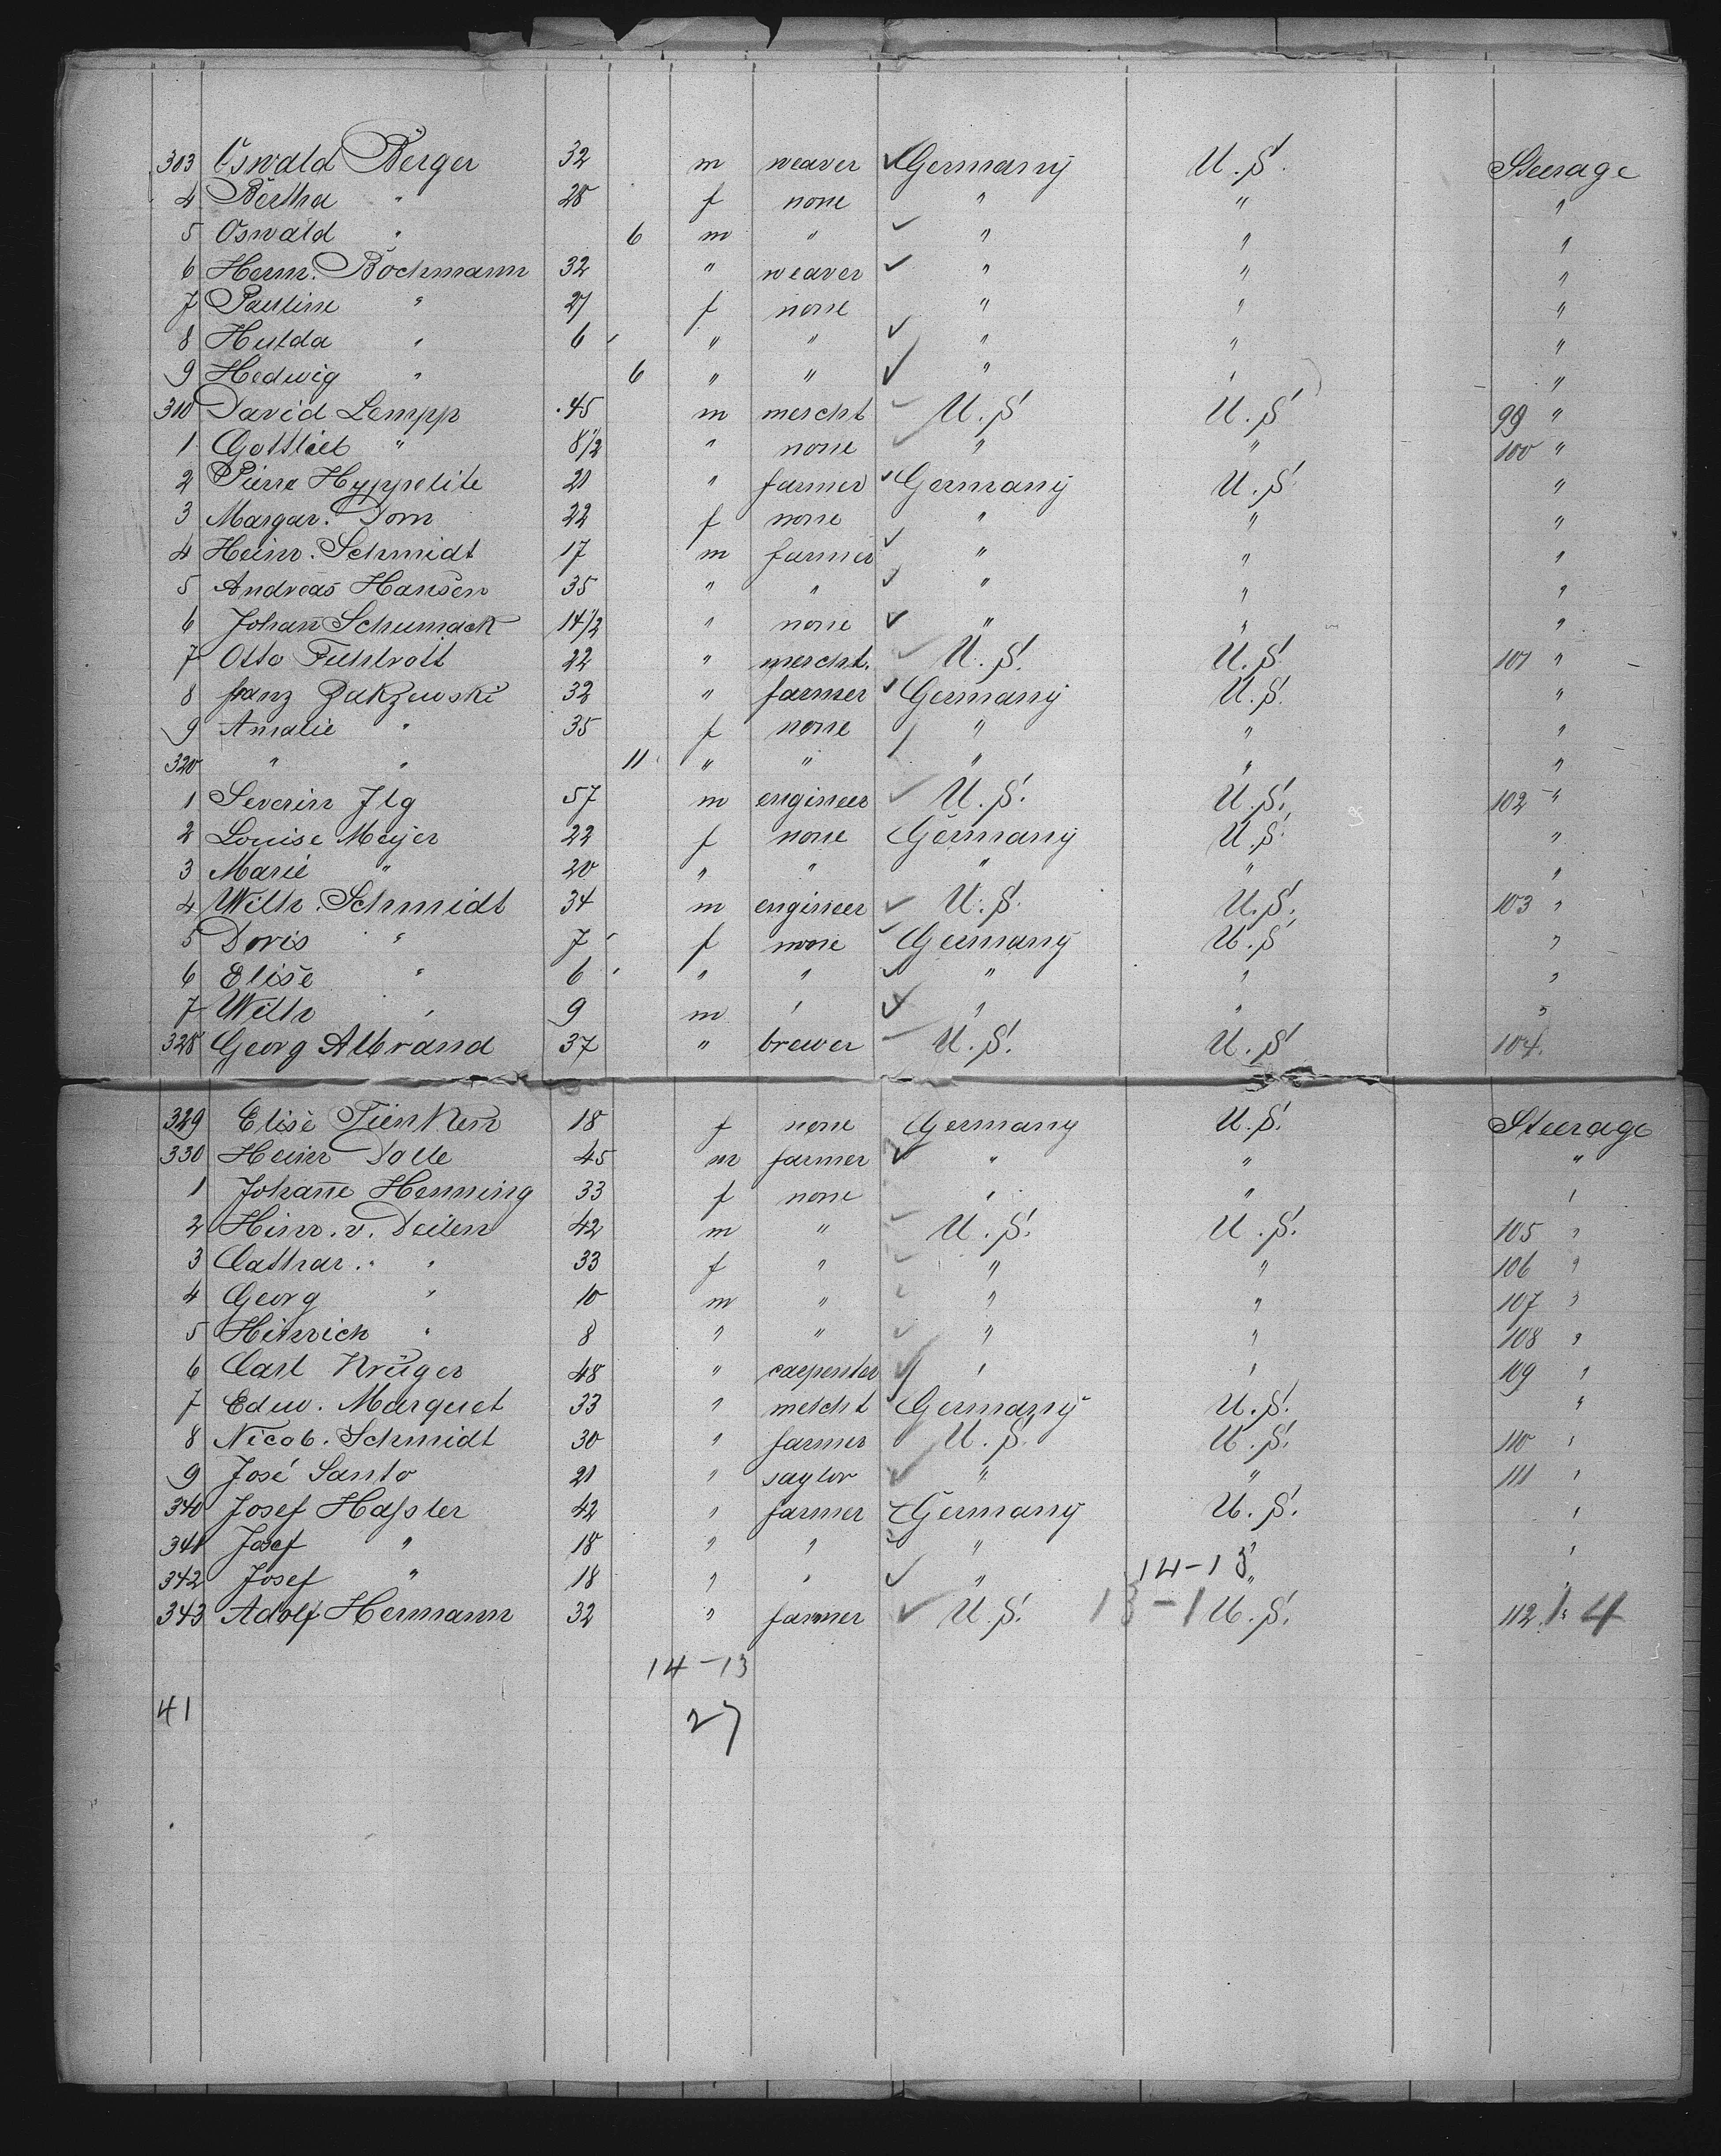 303 Oswald Berger 32 m weaver Germany U.S. Steerage
4 Bertha " 28 f none " " "
5 Oswald " 6 m " " " "
6 Herm. Bochmann 32 " weaver " " "
7 Pauline " 27 f none " " "
8 Hulda " 6 " " " " "
9 Hedwig " 6 " " " " "
310 David Lempp 45 m mercht U.S. U.S. 99 "
1 Gottlieb " 8 1/2 " none " " 100 "
2 Pierre Hyppolite 21 " farmer Germany U.S. "
3 Margar. Dorn 22 f none " " "
4 Heinr. Schmidt 17 m farmer " " "
5 Andreas Hansen 35 " " " " "
6 Johan Schumack 14 1/2 " none " " "
7 Otto Fuhlrott 22 " mercht. U.S. U.S. 101 "
8 Franz Zakzewski 32 " farmer Germany U.S. "
9 Amalie " 35 f none " " "
320 " " 11 " " " " "
1 Severin Ilg 57 m engineer U.S. U.S. 102 "
2 Louise Meyer 22 f none Germany U.S. "
3 Marie " 20 " " " " "
4 Wilh. Schmidt 34 m engineer U.S. U.S. 103 "
5 Doris " 7 f none Germany U.S. "
6 Elise " 6 " " " " "
7 Wilh " 9 m " " " "
328 Georg Albrand 37 " brewer U.S. U.S. 104.
329 Elise Tienken 18 f none Germany U.S. Steerage
330 Heinr Dolle 45 m farmer " " "
1 Johanne Henning 33 f none " " "
2 Hinr. v. Deilen 42 m " U.S. U.S. 105 "
3 Cathar. " " 33 f " " " 106 "
4 Georg " 10 m " " " 107 "
5 Hinrich " 8 " " " " 108 "
6 Carl Krüger 48 " carpenter " " 109 "
7 Edw. Marquet 33 " mercht Germany U.S. "
8 Nicol. Schmidt 30 " farmer U.S. U.S. 110 "
9 José Santo 21 " saylor " " 111 "
340 Josef Hassler 42 " farmer Germany U.S. "
341 Josef " 18 " " " "
342 Josef " 18 " " " 14-13 "
343 Adolf Hermann 32 " farmer U.S. 13-1 U.S. 112 " 14
14-13
41 27